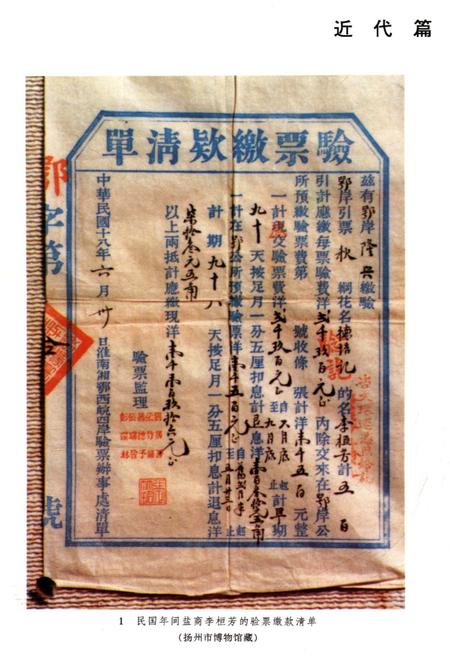 近代篇
驗票繳欵清單
兹有鄂岸隆興繳驗
鄂岸引票秋綱花名德 記的名李桓芳計五百
引計應繳每票驗費洋弍千 百元正內除交來在鄂岸公
所預繳驗票費第 號收條 張計洋壹千五百元整
一計現交驗票費洋弍千 百元正自六月底起至九月底止計早期
九十天按足月一分五厘扣息計退息洋
一計在鄂公所預繳驗票洋壹千五百元正自 起至五月廿三日止
計期九十八天按足月一分五厘扣息計退息洋
柒拾叁元五角
以上兩抵計應繳現洋壹千
驗票監理
中華民國十八年六月卅日淮南湘鄂西皖四岸驗票辦事處清單
鄂字第
號
1 民国年间盐商李桓芳的验票缴款清单
(扬州市博物馆藏)